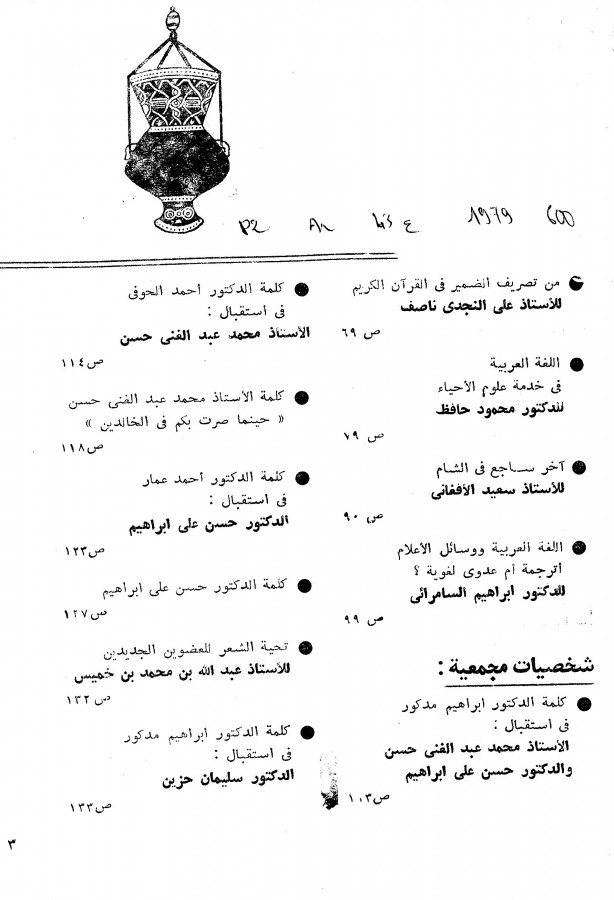 1979 600
من تصريف الضمير فى القرآن الكريم
للأستاذ على النجدى ناصف
ص ٦٩
اللغة العربية
فى خدمة علوم الأحياء
للدكتور محمود حافظ
ص ٧٩
آخر ساجع فى الشام
للأستاذ سعيد الأفغانى
ص ٩٠
اللغة العربية ووسائل الأعلام
أترجمة أم عدوى لغوية ؟
للدكتور ابراهيم السامرائى
ص ٩٩
شخصيات مجمعية :
كلمة الدكتور ابراهيم مدكور
فى استقبال :
الأستاذ محمد عبد الغنى حسن
والدكتور حسن على ابراهيم
ص ١٠٣
كلمة الدكتور أحمد الحوفى
فى استقبال :
الأستاذ محمد عبد الغنى حسن
ص ١١٤
كلمة الأستاذ محمد عبد الغنى حسن
« حينما صرت بكم فى الخالدين »
ص ١١٨
كلمة الدكتور أحمد عمار
فى استقبال :
الدكتور حسن على ابراهيم
ص ١٢٣
كلمة الدكتور حسن على ابراهيم
ص ١٢٧
تحية الشعر للعضوين الجديدين
للأستاذ عبد الله بن محمد بن خميس
ص ١٣٢
كلمة الدكتور ابراهيم مدكور
فى استقبال :
الدكتور سليمان حزين
ص ١٣٣
٣